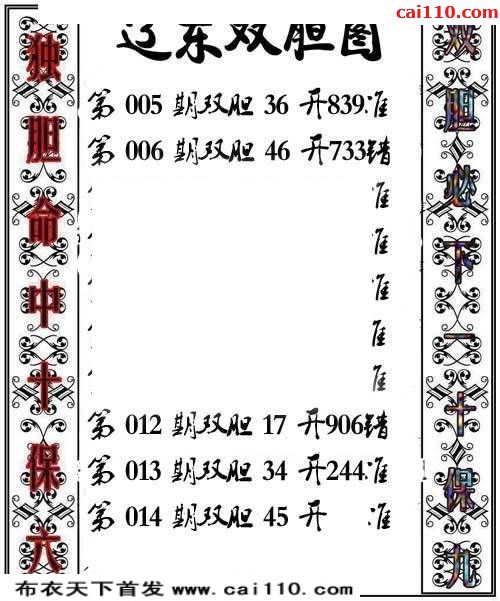 cai110.com
辽东双胆图
独胆命中十保六
双胆必下一十保九
第 005 期双胆 36 开839准
第 006 期双胆 46 开733错
准
准
准
准
准
第 012 期双胆 17 开906错
第 013 期双胆 34 开244准
第 014 期双胆 45 开 准
布衣天下首发 www.cai110.com